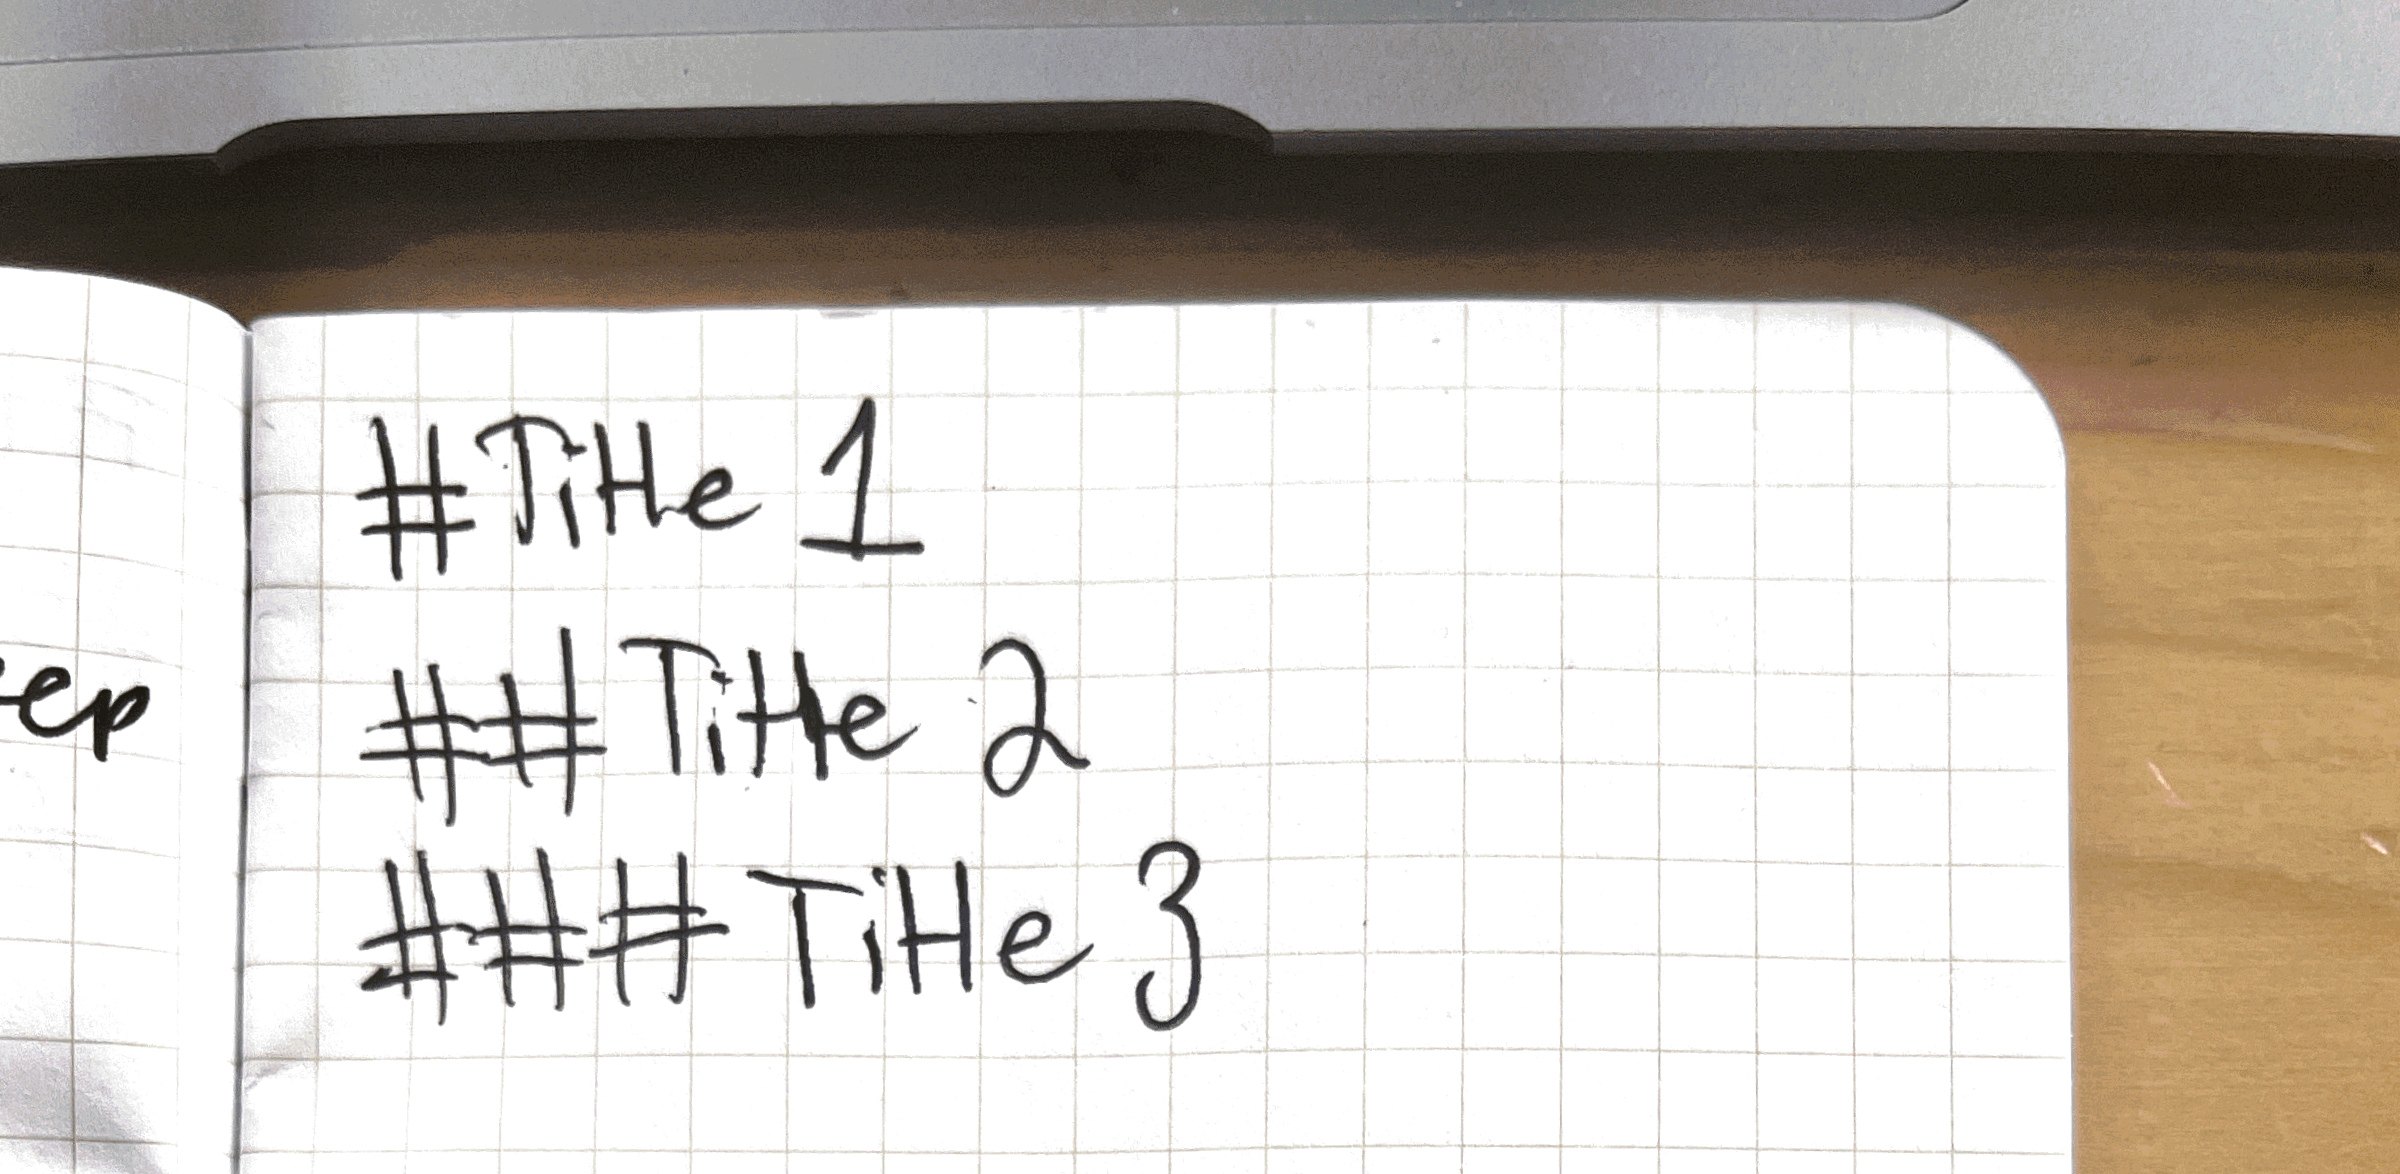 #Title 1
##Title 2
###Title 3